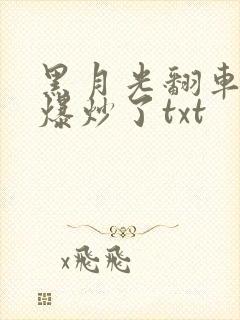 黑月光翻車
爆炒了txt
x飛飛